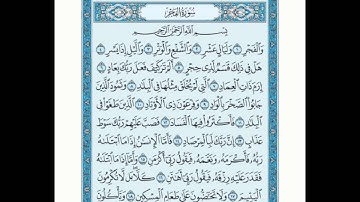 سورة الفجر
بسم الله الرحمن الرحيم
والفجر ١ وليال عشر ٢ والشفع والوتر ٣ واليل إذا يسر ٤
هل في ذلك قسم لذي حجر ٥ ألم تر كيف فعل ربك بعاد ٦
إرم ذات العماد ٧ التي لم يخلق مثلها في البلد ٨ وثمود الذين
جابوا الصخر بالواد ٩ وفرعون ذي الأوتاد ١٠ الذين طغوا في
البلد ١١ فأكثروا فيها الفساد ١٢ فصب عليهم ربك سوط
عذاب ١٣ إن ربك لبالمرصاد ١٤ فأما الإنسن إذا ما ابتلىه
ربه فأكرمه ونعمه فيقول ربي أكرمن ١٥ وأما إذا ما ابتلىه
فقدر عليه رزقه فيقول ربي أهنن ١٦ كلا بل لا تكرمون
اليتيم ١٧ ولا تحضون على طعام المسكين ١٨ وتأكلون